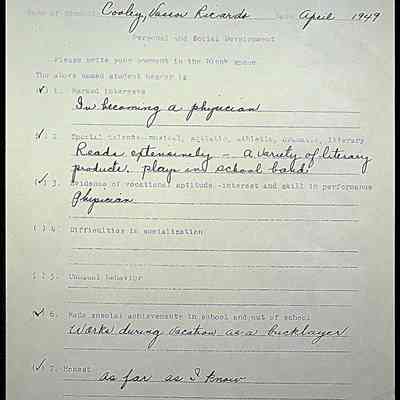 Name of Student Cooley, Vasco Ricardo Date April 1949
Personal and Social Development
Please write your comment in the blank space.
The above named student he/she is
(✓) 1. Marked interests
In becoming a physician
(✓) 2. Special talents--musical, artistic, athletic, dramatic, literary
Reads extensively – a variety of literary
products. plays in school band.
(✓) 3. Evidence of vocational aptitude -interest and skill in performance
Physician
( ) 4. Difficulties in socialization
( ) 5. Unusual behavior
(✓) 6. Made special achievements in school and out of school
Works during vacation as a bricklayer
(✓) 7. Honest
as far as I know